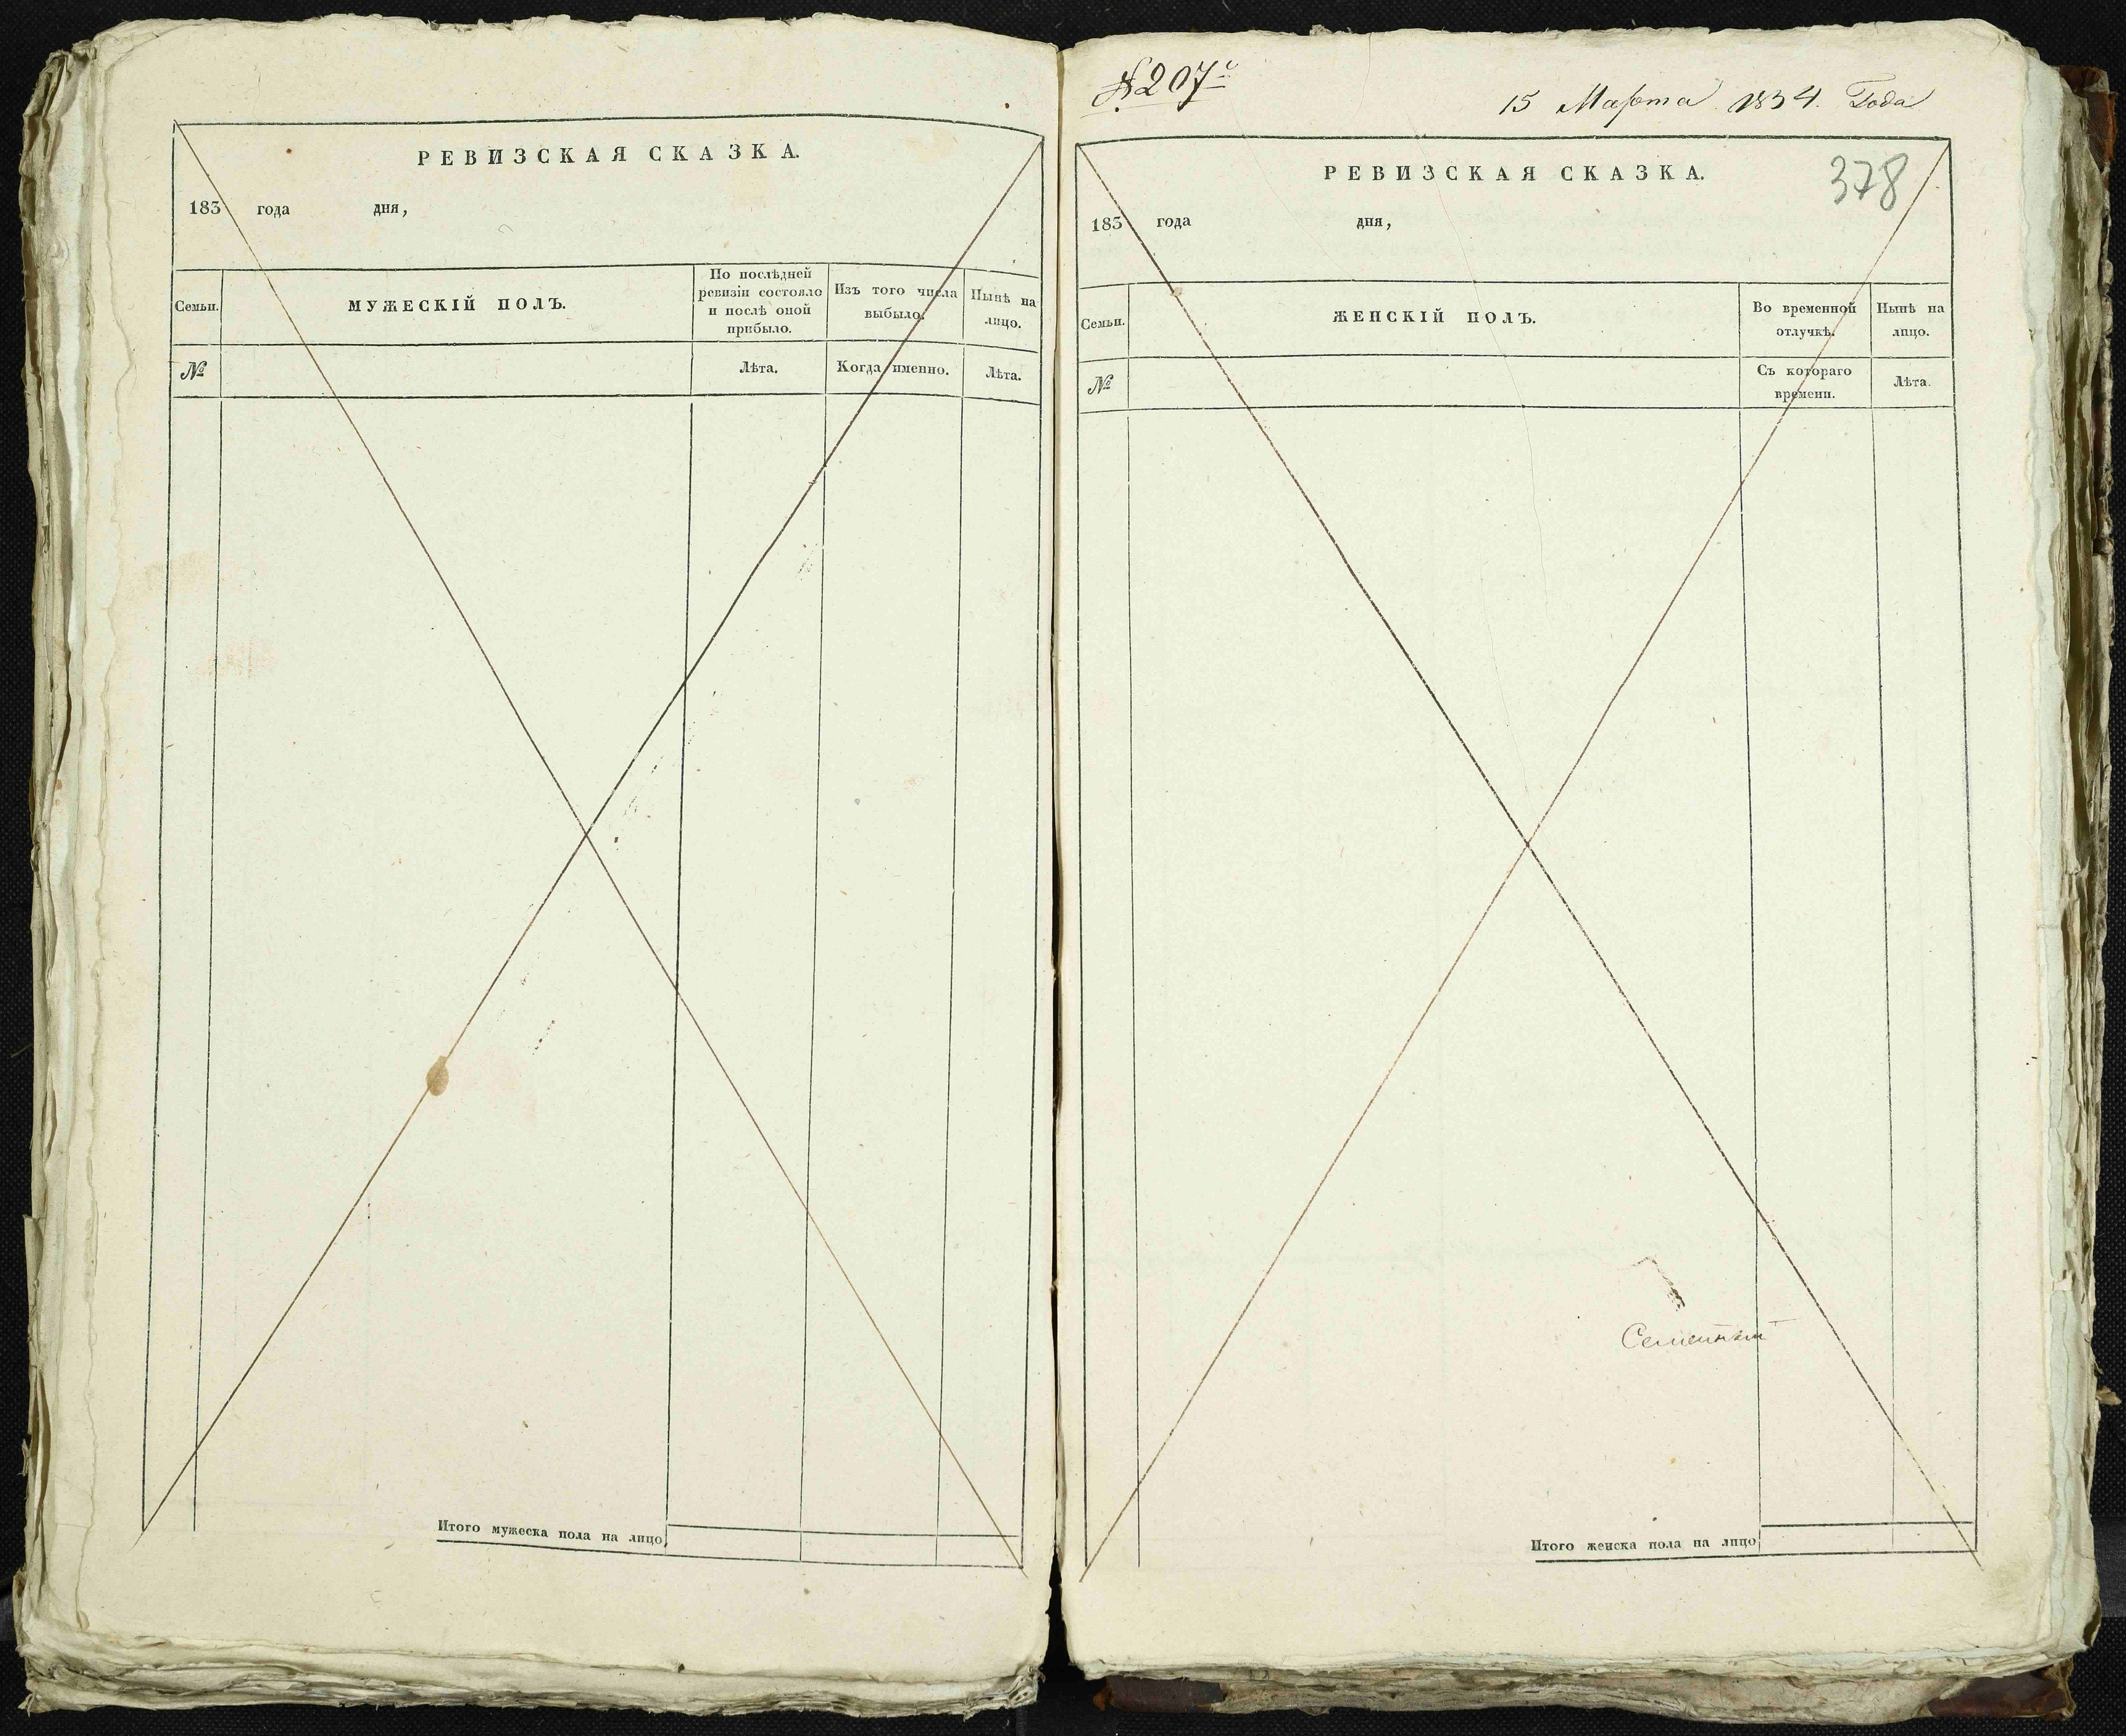 РЕВИЗСКАЯ СКАЗКА.
183 года дня,
Семьи.
МУЖЕСКІЙ ПОЛЪ.
По послѣдней
ревизіи состояло
и послѣ оной
прибыло.
Изъ того числа
выбыло.
Нынѣ на
лицо.
№
Лѣта.
Когда именно.
Лѣта.
Итого мужеска пола на лицо
№ 207й
15 Марта 1834. Года
РЕВИЗСКАЯ СКАЗКА.
378
183 года дня,
Семьи.
ЖЕНСКІЙ ПОЛЪ.
Во временной
отлучкѣ.
Нынѣ на
лицо.
№
Съ котораго
времени.
Лѣта.
Итого женска пола на лицо